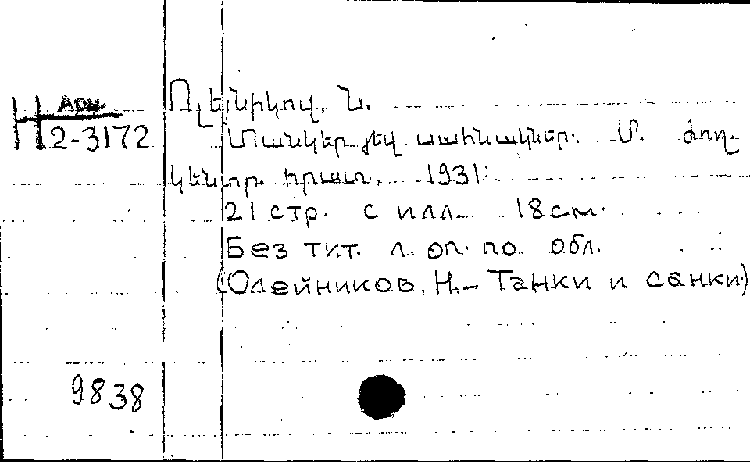 Арм.
Н 2-3172
Ոլեյնիկով, Ն.
Տանկեր յեվ սահնակներ. Մ. ժող.
կենտր. հրատ. 1931
21 стр. с илл. 18 см.
Без тит. л. оп. по обл.
(Олейников, Н.- Танки и санки)
9838